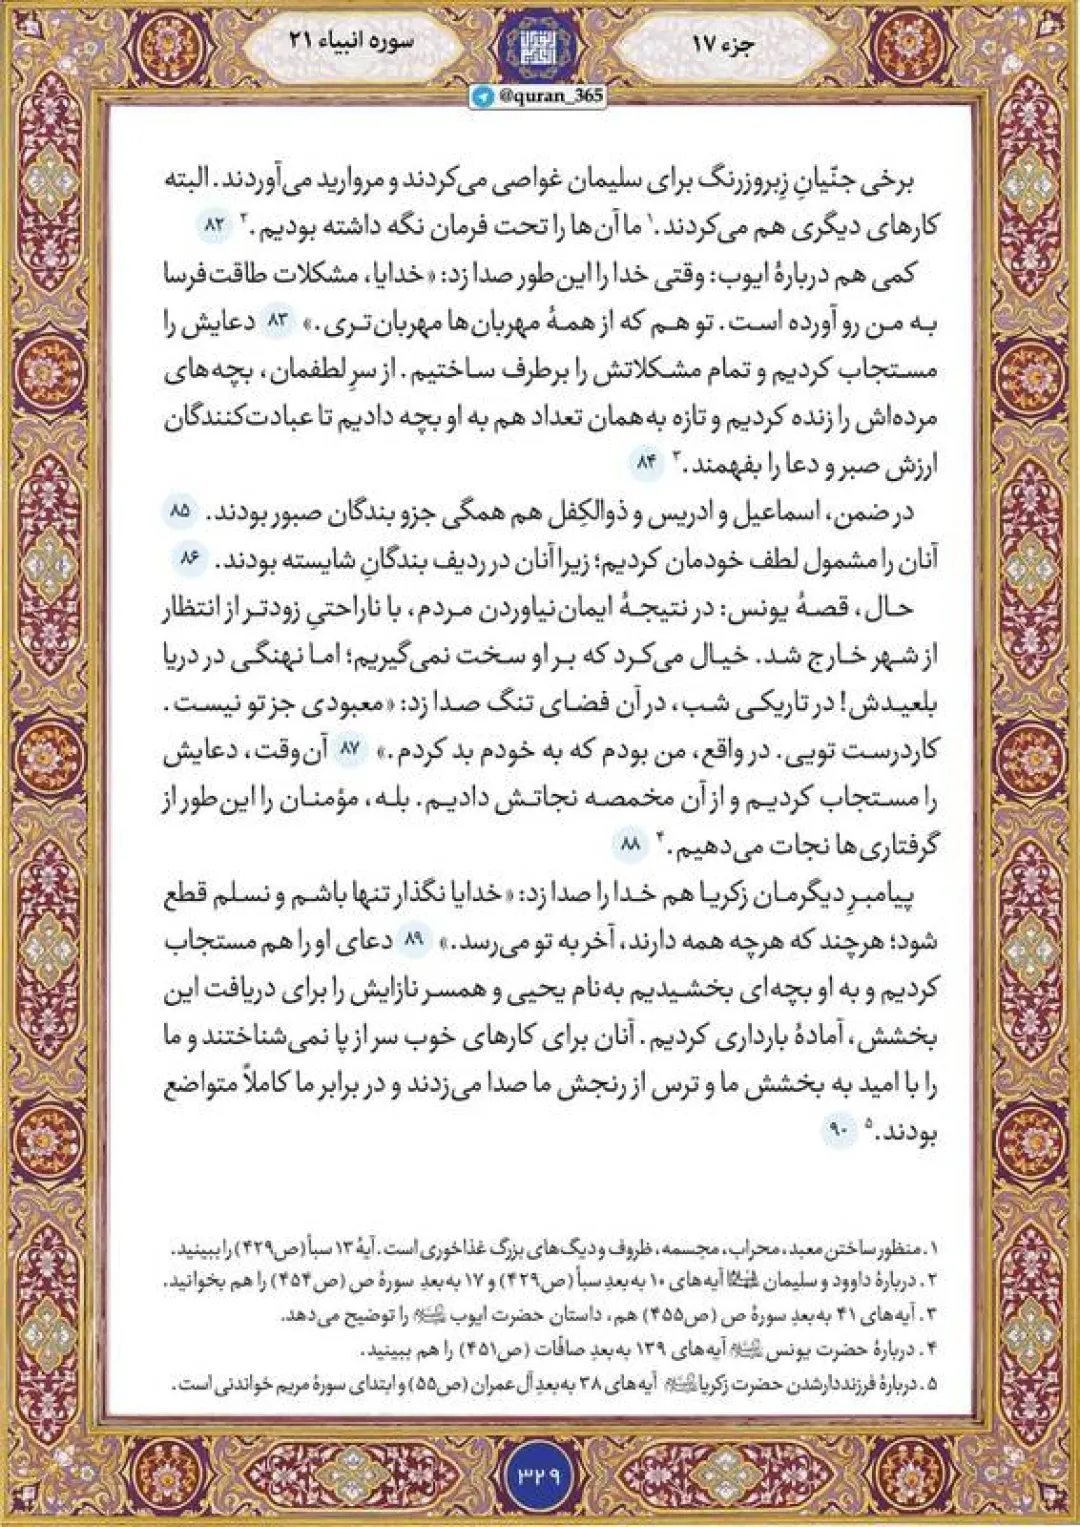 جزء ۱۷
سوره انبیاء ۲۱
@quran_365
برخی جنّیانِ زِبروزرنگ برای سلیمان غواصی می‌کردند و مروارید می‌آوردند. البته
کارهای دیگری هم می‌کردند.۱ ما آن‌ها را تحت فرمان نگه داشته بودیم.۲ ۸۲
کمی هم دربارهٔ ایوب: وقتی خدا را این‌طور صدا زد: «خدایا، مشکلات طاقت‌فرسا
به من رو آورده است. تو هم که از همهٔ مهربان‌ها مهربان‌تری.» ۸۳ دعایش را
مستجاب کردیم و تمام مشکلاتش را برطرف ساختیم. از سرِ لطفمان، بچه‌های
مرده‌اش را زنده کردیم و تازه به‌همان تعداد هم به او بچه دادیم تا عبادت‌کنندگان
ارزش صبر و دعا را بفهمند.۳ ۸۴
در ضمن، اسماعیل و ادریس و ذوالکِفل هم همگی جزو بندگان صبور بودند. ۸۵
آنان را مشمول لطف خودمان کردیم؛ زیرا آنان در ردیف بندگانِ شایسته بودند. ۸۶
حال، قصهٔ یونس: در نتیجهٔ ایمان‌نیاوردن مردم، با ناراحتیِ زودتر از انتظار
از شهر خارج شد. خیال می‌کرد که بر او سخت نمی‌گیریم؛ اما نهنگی در دریا
بلعیدش! در تاریکی شب، در آن فضای تنگ صدا زد: «معبودی جز تو نیست.
کاردرست تویی. در واقع، من بودم که به خودم بد کردم.» ۸۷ آن‌وقت، دعایش
را مستجاب کردیم و از آن مخمصه نجاتش دادیم. بله، مؤمنان را این‌طور از
گرفتاری‌ها نجات می‌دهیم.۴ ۸۸
پیامبرِ دیگرمان زکریا هم خدا را صدا زد: «خدایا نگذار تنها باشم و نسلم قطع
شود؛ هرچند که هرچه همه دارند، آخر به تو می‌رسد.» ۸۹ دعای او را هم مستجاب
کردیم و به او بچه‌ای بخشیدیم به‌نام یحیی و همسر نازایش را برای دریافت این
بخشش، آمادهٔ بارداری کردیم. آنان برای کارهای خوب سر از پا نمی‌شناختند و ما
را با امید به بخشش ما و ترس از رنجش ما صدا می‌زدند و در برابر ما کاملاً متواضع
بودند.۵ ۹۰
۱. منظور ساختن معبد، محراب، مجسمه، ظروف و دیگ‌های بزرگ غذاخوری است. آیهٔ ۱۳ سبأ (ص۴۲۹) را ببینید.
۲. دربارهٔ داوود و سلیمان آیه‌های ۱۰ به‌بعدِ سبأ (ص۴۲۹) و ۱۷ به‌بعدِ سورهٔ ص (ص۴۵۴) را هم بخوانید.
۳. آیه‌های ۴۱ به‌بعدِ سورهٔ ص (ص۴۵۵) هم، داستان حضرت ایوب را توضیح می‌دهد.
۴. دربارهٔ حضرت یونس آیه‌های ۱۳۹ به‌بعدِ صافّات (ص۴۵۱) را هم ببینید.
۵. دربارهٔ فرزنددارشدن حضرت زکریا آیه‌های ۳۸ به‌بعدِ آل‌عمران (ص۵۵) و ابتدای سورهٔ مریم خواندنی است.
۳۲۹